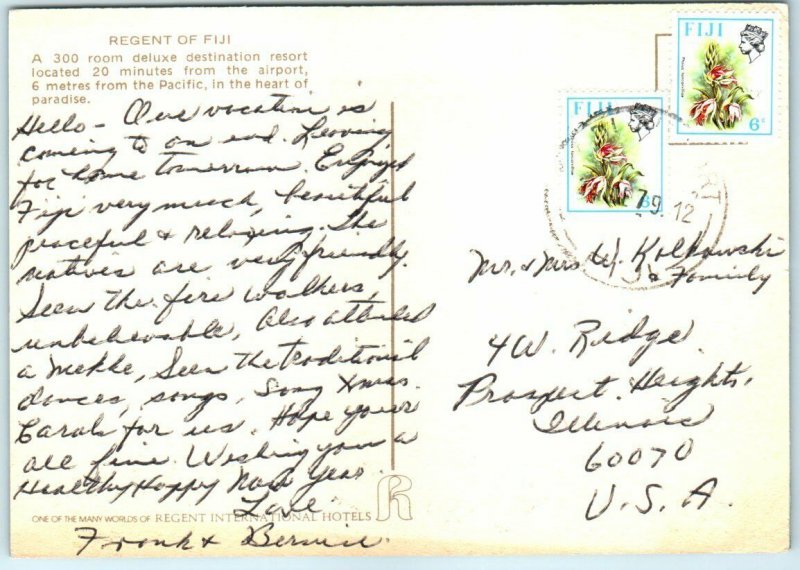 REGENT OF FIJI
A 300 room deluxe destination resort
located 20 minutes from the airport,
6 metres from the Pacific, in the heart of
paradise.
Hello - Our vacation is
coming to an end. Leaving
for home tomorrow. Enjoyed
Fiji very much, beautiful
peaceful & relaxing. The
natives are very friendly.
Seen the fire walkers,
unbelievable, Also attended
a mekke, Seen the traditional
dances, songs, Sang Xmas
Carols for us. Hope your
all fine. Wishing you a
Healthy Happy New Year.
Love
Frank & Bernice.
ONE OF THE MANY WORLDS OF REGENT INTERNATIONAL HOTELS
R
FIJI
6c
FIJI
6
79
12
Mr. & Mrs W. Kolkowski
& Family
4 W. Ridge
Prospect Heights,
Illinois
60070
U.S.A.